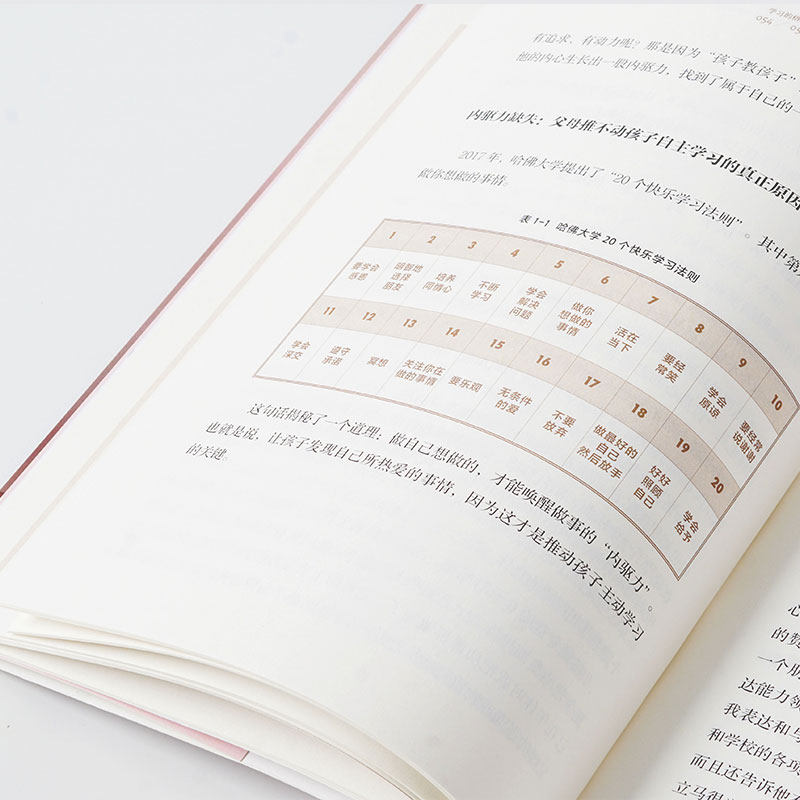 学习的
054
有追求、有动力呢？那是因为“孩子教孩子”
他的内心生长出一股内驱力，找到了属于自己的一
内驱力缺失：父母推不动孩子自主学习的真正原因
2017 年，哈佛大学提出了“20 个快乐学习法则”。其中第
做你想做的事情。
表 1-1 哈佛大学 20 个快乐学习法则
1 2 3 4 5 6 7 8 9 10
要学会感恩 明智地选择朋友 培养同情心 不断学习 学会解决问题 做你想做的事情 活在当下 要经常笑 学会原谅 要经常说谢谢
11 12 13 14 15 16 17 18 19 20
学会深交 遵守承诺 冥想 关注你在做的事情 要乐观 无条件的爱 不要放弃 做最好的自己然后放手 好好照顾自己 学会给予
这句话揭秘了一个道理：做自己想做的，才能唤醒做事的“内驱力”。
也就是说，让孩子发现自己所热爱的事情，因为这才是推动孩子主动学习
的关键。
心
的赞
一个朋
达能力
我表达和与
和学校的各项
而且还告诉他
立马很